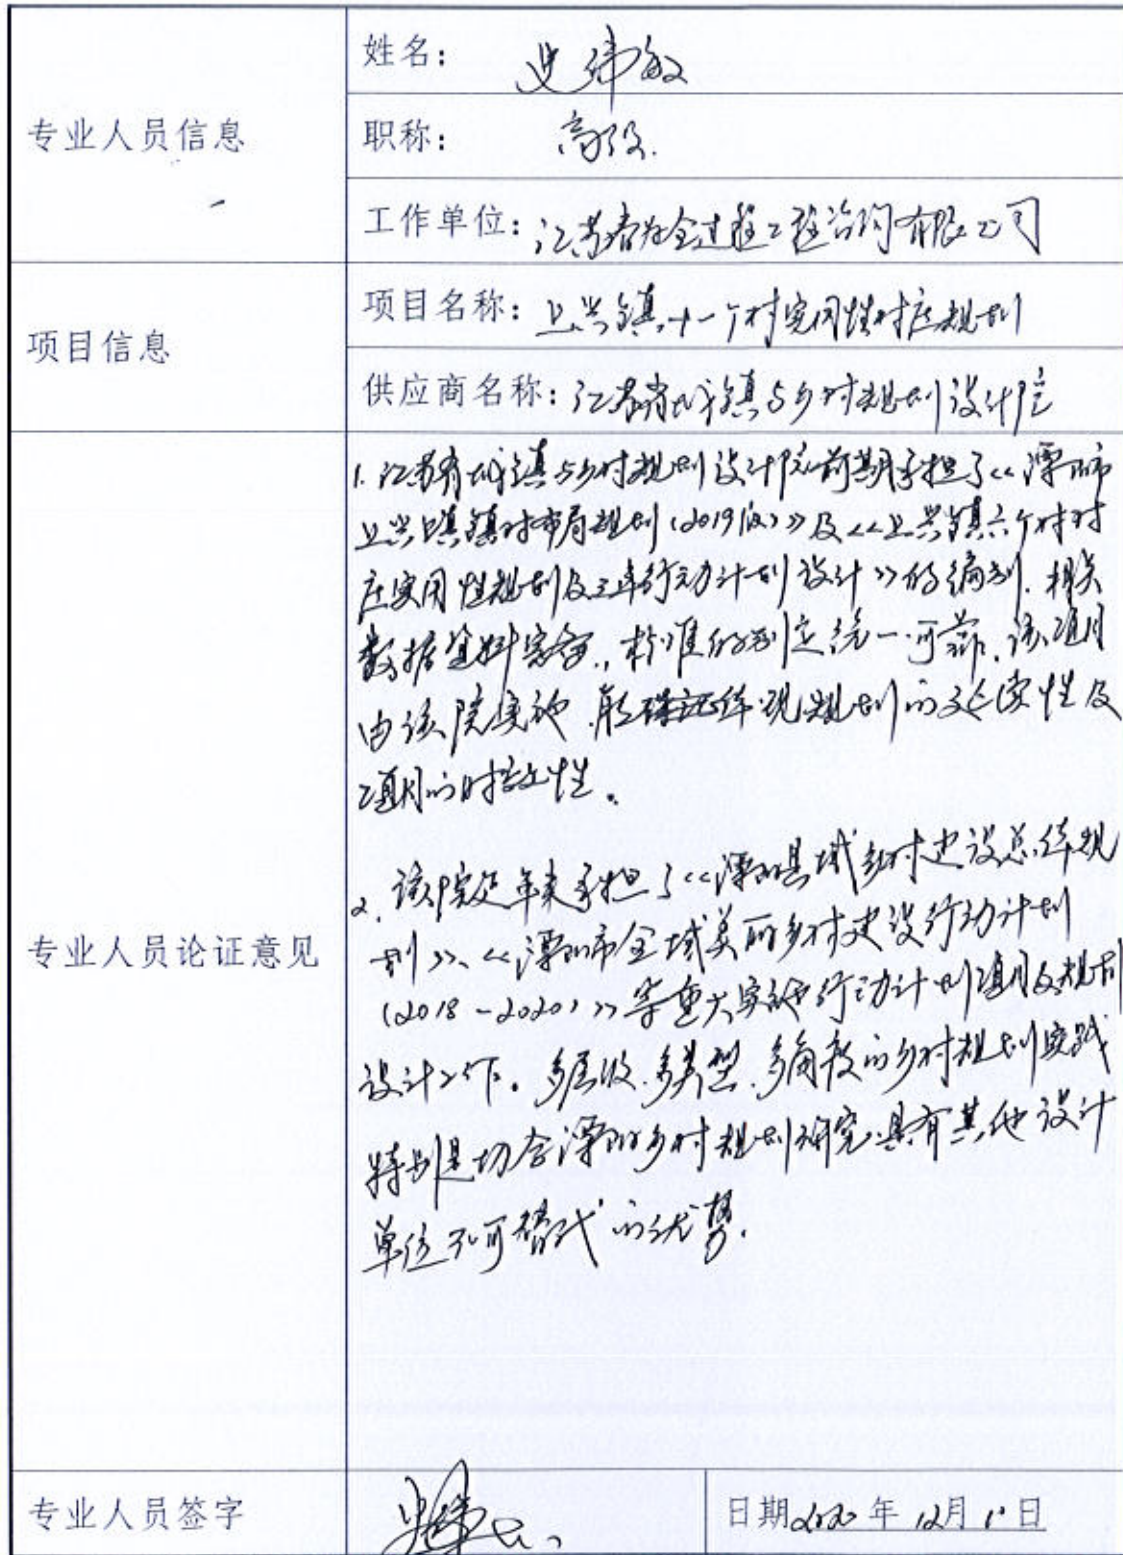 姓名：史伟敏
专业人员信息
职称：高级.
工作单位：江苏春为全过程工程咨询有限公司
项目信息
项目名称：上兴镇十一个村实用性村庄规划
供应商名称：江苏省城镇与乡村规划设计院
1. 江苏省城镇与乡村规划设计院前期承担了《溧阳市
上兴镇镇村布局规划（2019版）》及《上兴镇六个村村
庄实用性规划及三年行动计划设计》的编制. 相关
数据资料完备，标准的制定统一可靠，该项目
由该院实施，能体现规划的延续性及
项目的时效性。
2. 该院近年来承担了《溧阳县域乡村建设总体规
划》、《溧阳市全域美丽乡村建设行动计划
（2018-2020）》等重大实施行动计划项目及规划
设计工作。多层级.多类型.多角度的乡村规划实践
特别是切合溧阳乡村规划研究具有其他设计
单位不可替代的优势.
专业人员论证意见
专业人员签字
日期2020年12月1日